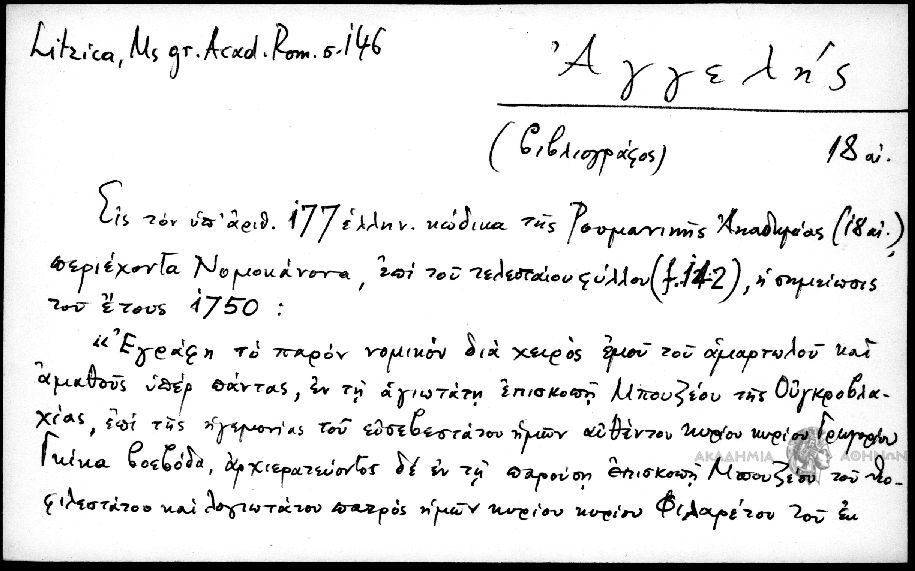 Litzica, Ms gr. Acad. Rom. σ. 146
Ἀγγελής
(βιβλιογράφος) 18 αἰ.
Εἰς τὸν ὑπ' ἀριθ. 177 ἑλλην. κώδικα τῆς Ρουμανικῆς Ἀκαδημίας (18 αἰ.),
περιέχοντα Νομοκάνονα, ἐπὶ τοῦ τελευταίου φύλλου (f. 142), ἡ σημείωσις
τοῦ ἔτους 1750 :
"Ἐγράφη τὸ παρὸν νομικὸν διὰ χειρὸς ἐμοῦ τοῦ ἁμαρτωλοῦ καὶ
ἀμαθοῦς ὑπὲρ πάντας, ἐν τῇ ἁγιωτάτῃ ἐπισκοπῇ Μπουζέου τῆς Οὐγκροβλα-
χίας, ἐπὶ τῆς ἡγεμονίας τοῦ εὐσεβεστάτου ἡμῶν αὐθέντου κυρίου κυρίου Γρηγορίου
Γκίκα βοεβόδα, ἀρχιερατεύοντος δὲ ἐν τῇ παρούσῃ ἐπισκοπῇ Μπουζέου τοῦ θεο-
φιλεστάτου καὶ λογιωτάτου πατρὸς ἡμῶν κυρίου κυρίου Φιλαρέτου τοῦ ἐκ
ΑΚΑΔΗΜΙΑ ΑΘΗΝΩΝ